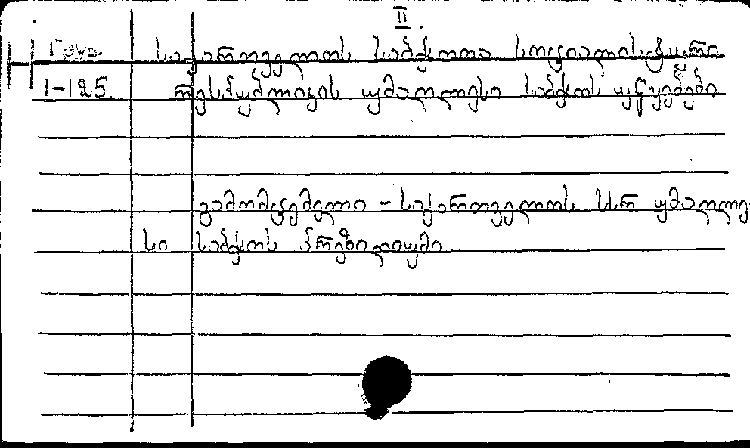 II.
საქართველოს საბჭოთა სოციალისტური
1-125 რესპუბლიკის უმაღლესი საბჭოს უწყებები
გამომცემელი – საქართველოს სსრ უმაღლე
სი საბჭოს პრეზიდიუმი